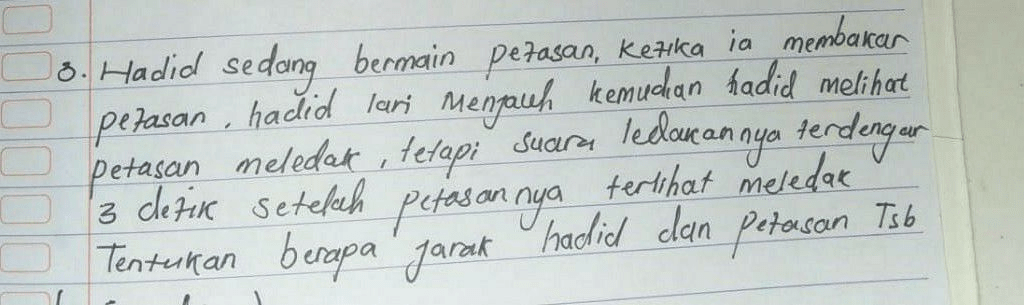 3. Hadid sedang bermain petasan, ketika ia membakar
petasan, hadid lari Menjauh kemudian hadid melihat
petasan meledak, tetapi suara ledakannya terdengar
3 detik setelah petasannya terlihat meledak
Tentukan berapa jarak hadid dan petasan Tsb